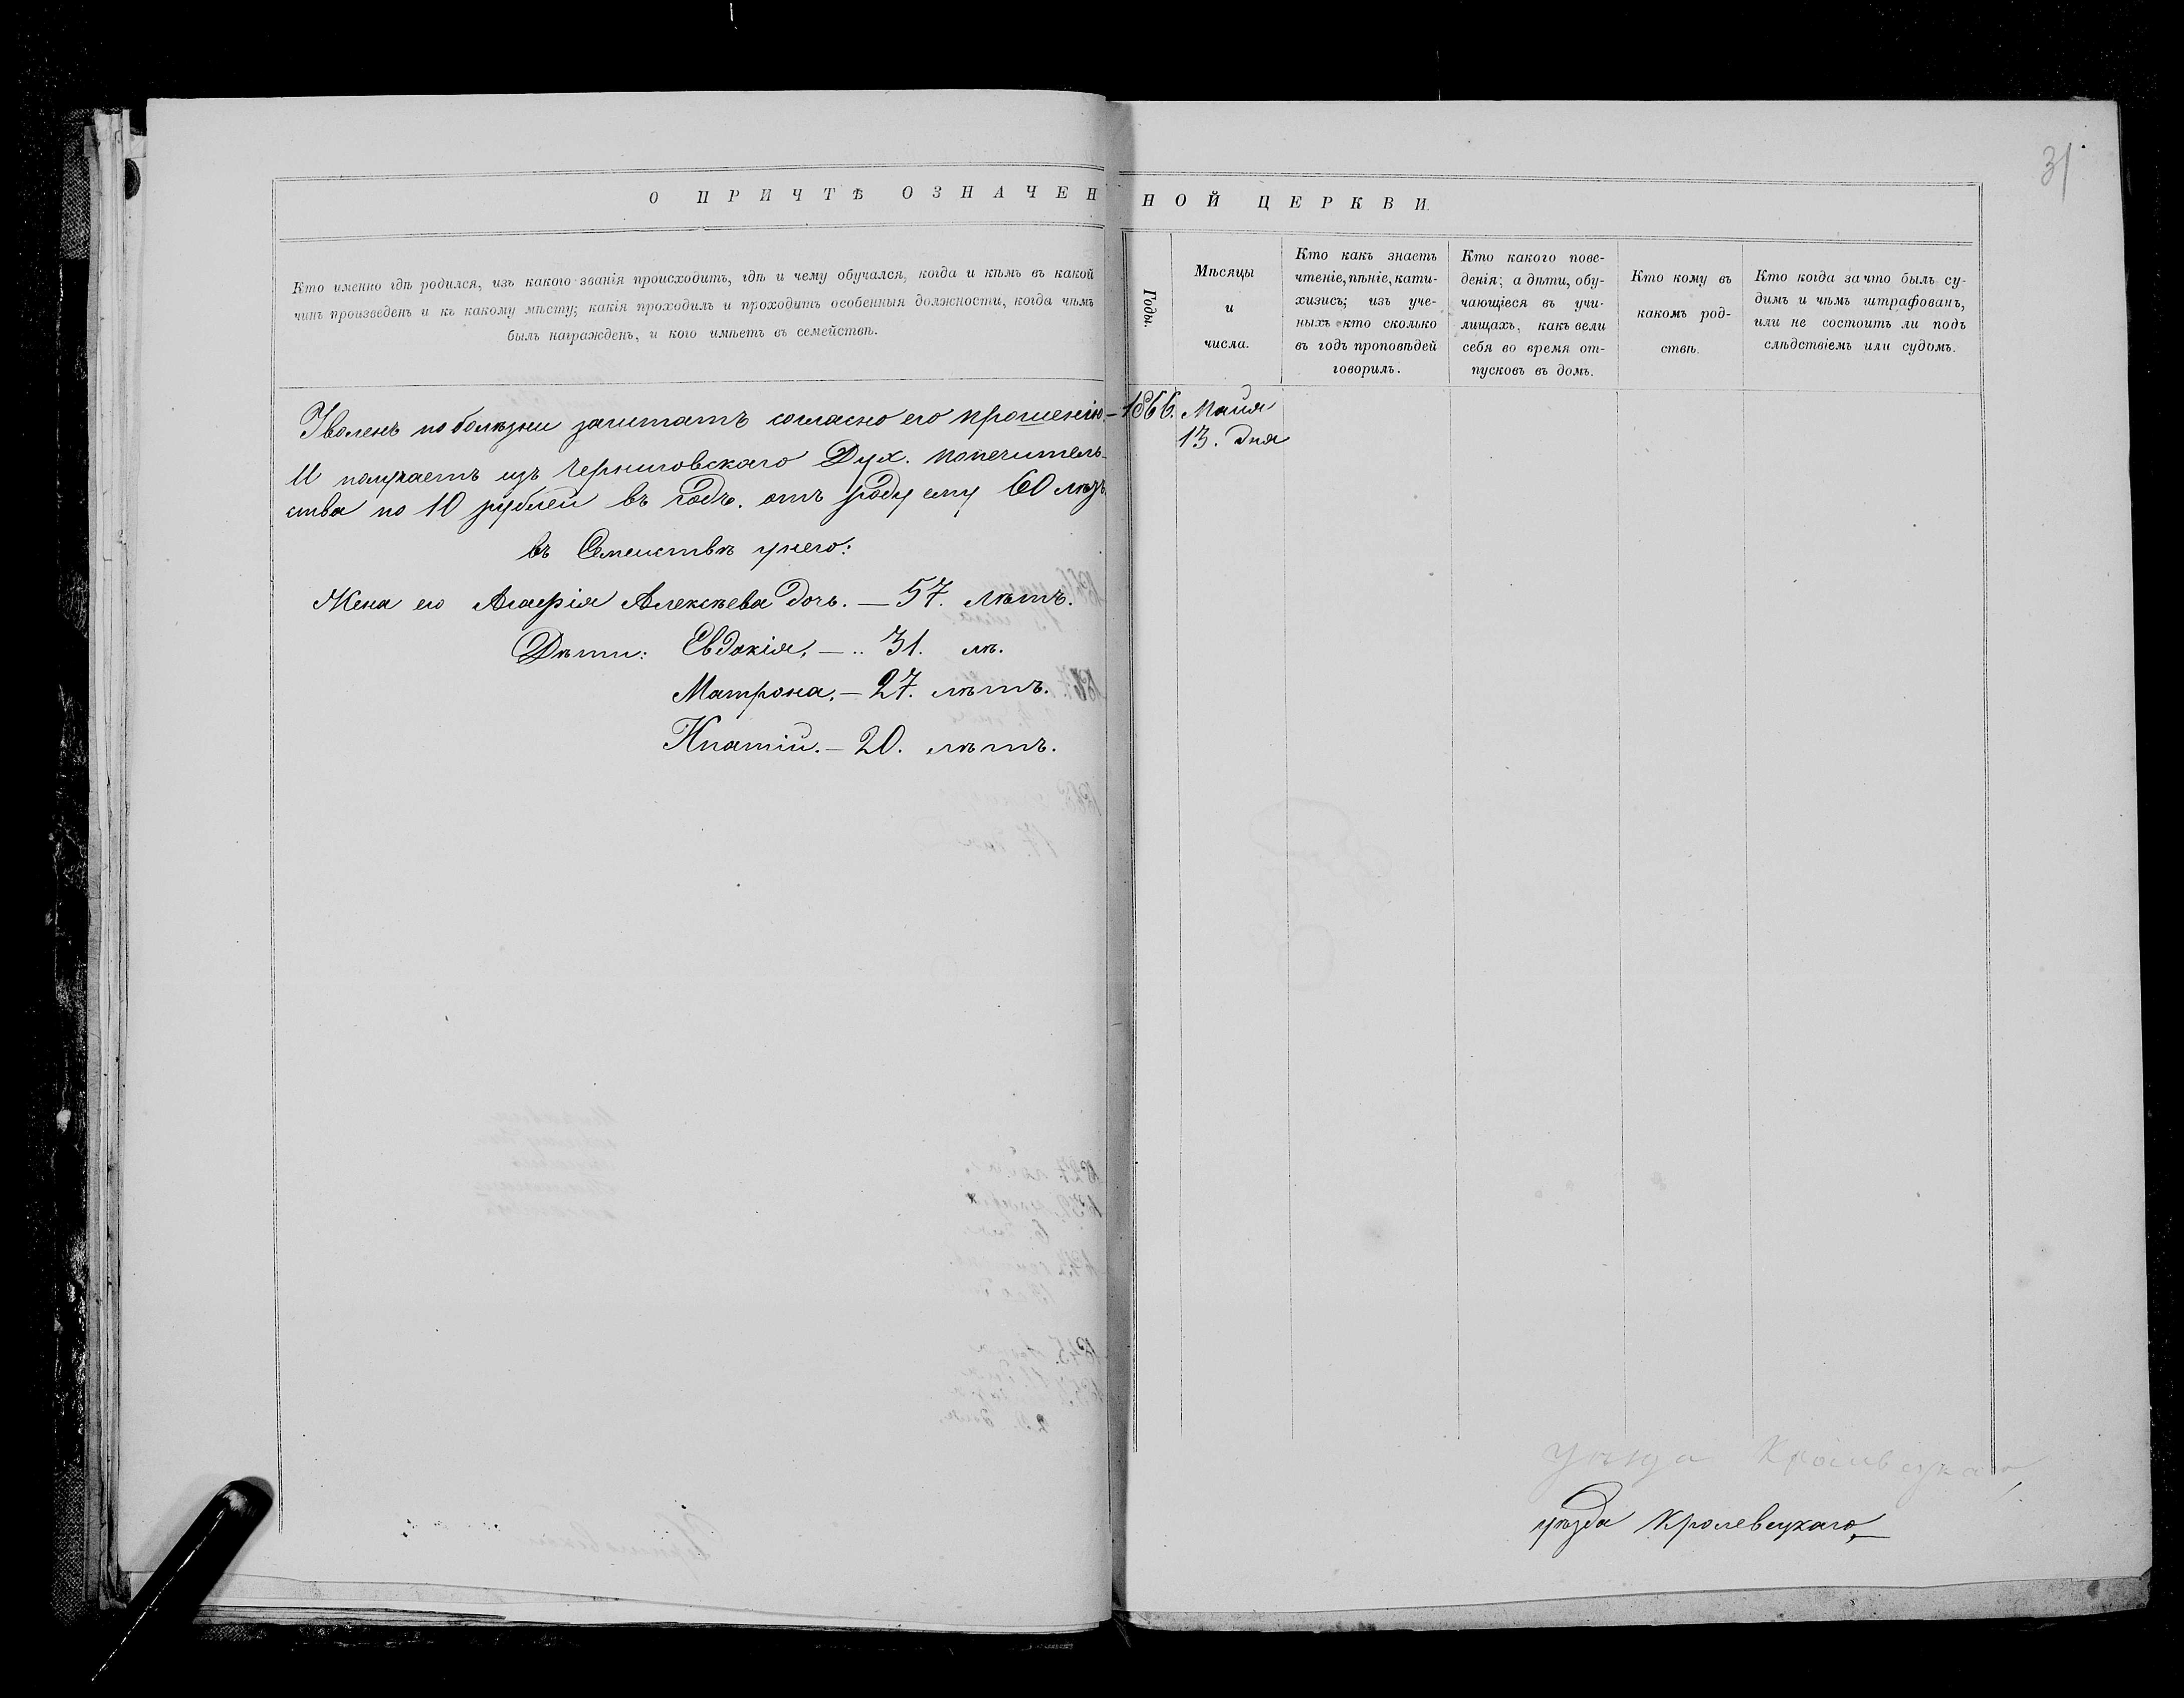 31
О ПРИЧТѢ ОЗНАЧЕННОЙ ЦЕРКВИ.
Кто именно гдѣ родился, изъ какого званія происходитъ, гдѣ и чему обучался, когда и кѣмъ въ какой
чинъ произведенъ и къ какому мѣсту; какія проходилъ и проходитъ особенныя должности, когда чѣмъ
былъ награжденъ, и кого имѣетъ въ семействѣ.
Годы.
Мѣсяцы
и
числа.
Кто какъ знаетъ
чтеніе, пѣніе, кати-
хизисъ; изъ уче-
ныхъ кто сколько
въ годъ проповѣдей
говорилъ.
Кто какого пове-
денія; а дѣти, обу-
чающіеся въ учи-
лищахъ, какъ вели
себя во время от-
пусковъ въ домъ.
Кто кому въ
какомъ род-
ствѣ.
Кто когда за что былъ су-
димъ и чѣмъ штрафованъ,
или не состоитъ ли подъ
слѣдствіемъ или судомъ.
Уволенъ по болѣзни заштатъ согласно его прошенію. — 1866. Майя
13. дня
И получаетъ изъ Черниговскаго Дух. попечитель-
ства по 10 рублей въ годъ. отъ роду ему 60 лѣтъ.
въ Семеиствѣ унего:
Жена его Агафія Алексѣева дочь. — 57. лѣтъ.
Дѣти: Евдокія. — .. 31. лѣ.
Матрона. — 27. лѣтъ.
Ипатій. — 20. лѣтъ.
уѣзда Кролевецкаго
уѣзда Кролевецкаго,